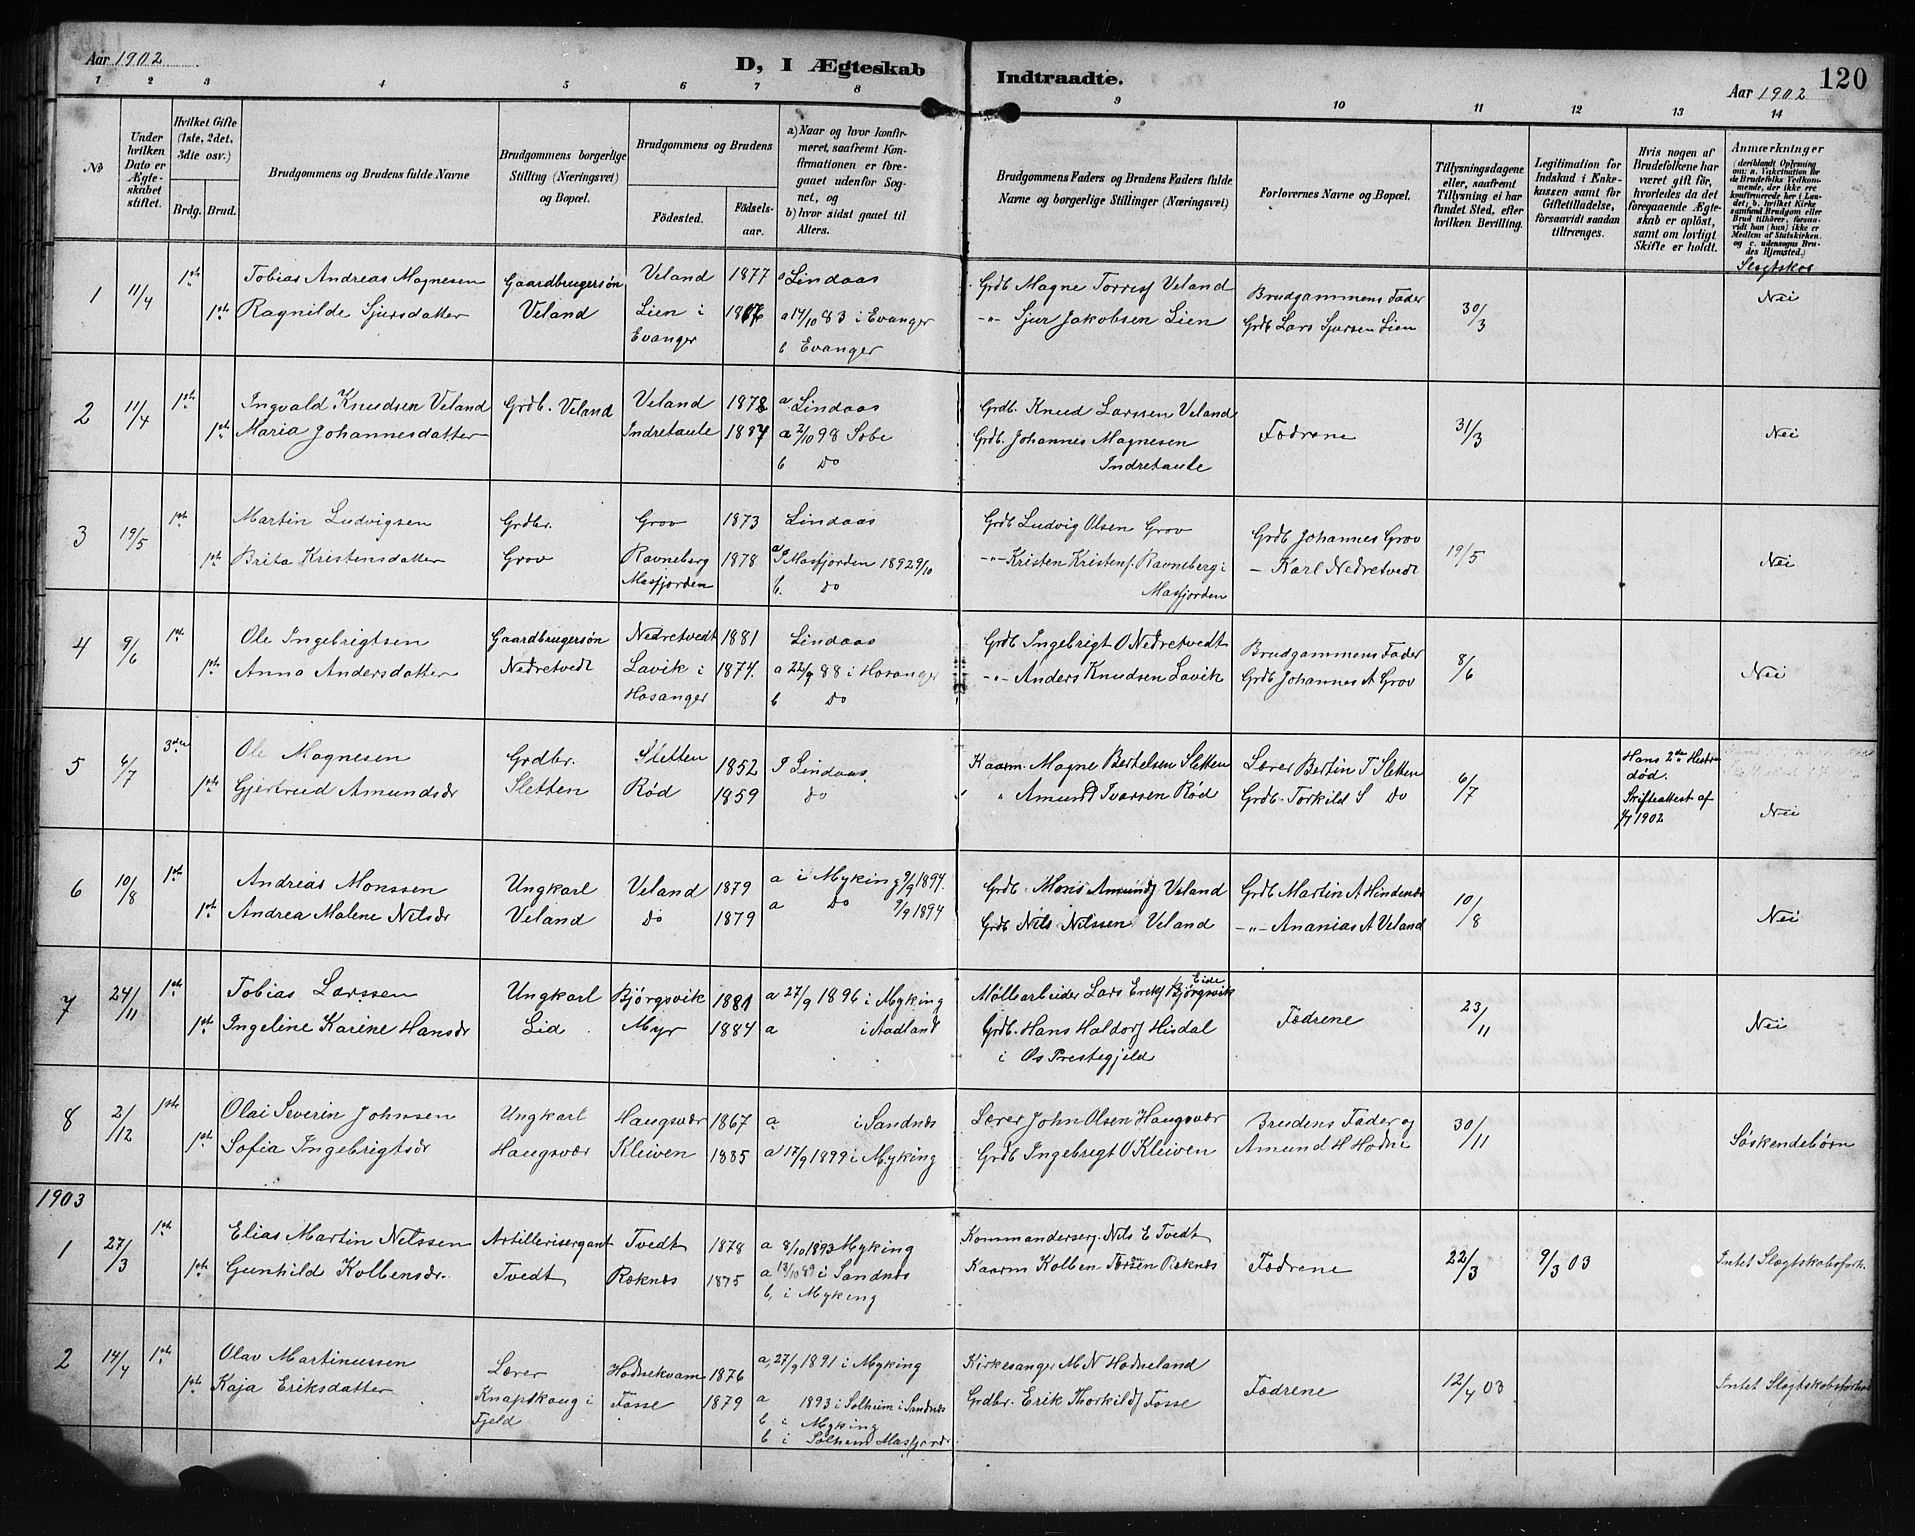 Aar 1902
D, I Ægteskab Indtraadte.
Aar 1902 120
1 2 3 4 5 6 7 8 9 10 11 12 13 14
No
Under hvilken Dato er Ægteskabet stiftet.
Hvilket Gifte (1ste, 2det, 3die osv.)
Brdg. Brud.
Brudgommens og Brudens fulde Navne
Brudgommens borgerlige Stilling (Næringsvei) og Bopæl.
Brudgommens og Brudens
Fødested. Fødselsaar.
a) Naar og hvor konfirmeret, saafremt Konfirmationen er foregaaet udenfor Sognet, og
b) hvor sidst gaaet til Alters.
Brudgommens Faders og Brudens Faders fulde Navne og borgerlige Stillinger (Næringsvei)
Forlovernes Navne og Bopæl.
Tillysningsdagene eller, saafremt Tillysning ei har fundet Sted, efter hvilken Bevilling.
Legitimation for Indskud i Enkekassen samt for Giftetilladelse, forsaavidt saadan tiltrænges.
Hvis nogen af Brudefolkene har været gift før, hvorledes da det foregaaende Ægteskab er opløst, samt om lovligt Skifte er holdt.
Anmærkninger
(deriblandt Oplysning om: a. Vakcination for de Brudefolks Vedkommende, der ikke ere konfirmerede her i Landet; b. hvilket Kirkesamfund Brudgom eller Brud tilhører, forsaavidt han (hun) ikke er Medlem af Statskirken og c. udensogns Brudes Hjemsted.)
1 11/4 1ste Tobias Andreas Magnesen Gaardbrugersøn Veland 1877 a Lindaas Grdb Magne Torresj Veland Brudgammens Fader 30/3 Nei
1ste Ragnilde Sjursdatter Veland Lien i a 14/10 83 i Evanger -"- Sjur Jakobsen Lien Grdb Lars Sjursen Lien
Evanger b Evanger
2 11/4 1ste Ingvald Knudsen Veland Grdb. Veland Veland 1878 a Lindaas Grdb. Knud Larssen Veland Fødrene 31/3 Nei
1ste Maria Johannesdatter Indretaule 1884 a 2/10 98 Sebe Grdb. Johannes Magnesen
b Do Indretaule
3 19/5 1ste Martin Ludvigsen Grdbr. Grov 1873 Lindaas Grdb Ludvig Olsen Grov Grdb Johannes Grov 19/5 Nei
1ste Brita Kristensdatter Grov Ravneberg 1878 a I Masfjorden 1892 9/10 -"- Kristen Kristens. Ravneberg i - Karl Nedretvedt
Masfjorden b. Do Masfjorden
4 9/6 1ste Ole Ingebrigtsen Gaardbrugersøn Nedretvedt 1881 Lindaas Grdb Ingebrigt O Nedretvedt Brudgammens Fader 8/6 Nei
1ste Anna Andersdatter Nedretvedt Lavik i 1874. a 22/9 88 i Hosanger -"- Anders Knudsen Lavik Grdb Johannes A Grov
Hosanger b Do
5 6/7 3die Ole Magnesen Grdbr. Sletten 1852 I Lindaas Kaarm. Magne Bertelsen Sletten Lærer Bertin T Sletten 6/7 Hans 2den Hustru
1ste Gjertrud Amundsdr Sletten Rød 1859 Do " Amund Ivarsen Rød Grdb. Torkild S Do død.
Skifteattest af 1902 Nei
6 10/8 1ste Andreas Monssen Ungkarl Veland 1879 a i Myking 9/9 1894. Grdb. Mons Amundsj Veland Grdb Martin A Hindenæs 10/8 Nei
1ste Andrea Malene Nilsdr Veland Do 1879 a Do 9/9 1894 Grdb Nils Nilssen Veland -"- Ananias A Veland
7 24/11 1ste Tobias Larssen Ungkarl Bjørgsvik 1881 a 27/9 1896 i Myking Møllearbeider Lars Eriksj Bjørgsvik Eide Fødrene 23/11 Nei
1ste Ingeline Karine Hansdr Lid Myr 1884 a i Aadland Grdb. Hans Haldorsj Hisdal
i Os Prestegjeld
8 2/12 1ste Olai Severin Johnsen Ungkarl Haugsvær 1867 a i Sandnæs Lærer John Olsen Haugsvær Brudens Fader og 30/11 Søskendebørn
1ste Sofia Ingebrigtsdr Haugsvær Kleiven 1885 a 17/9 1899 i Myking Grdb Ingebrigt O Kleiven Amund H Hodne
1903
1 27/3 1ste Elias Martin Nilssen Artillerisergant Tvedt 1878 a 8/10 1893 Myking Kommanderserg. Nils E Tvedt Fødrene 22/3 9/3 03 Intet Slægtskabsforh.
1ste Gunhild Kolbensdr. Tvedt Reknes 1875 a 13/10 89 i Sandnæs Kaarm Kolben Reknes
b, i Myking
2 14/4 1ste Olav Martinussen Lærer Hodnekvam 1876 a, 27/9 1891 i Myking Kirkesanger M N Hodneland Fødrene 12/4 03 Intet Slægtskabsforhold
1ste Kaja Eriksdatter Knapskaug i Fosse 1879 a 1893 i Solheim i Sandnæs Grdbr. Erik Thorkildsj Fosse
Fjeld b i Myking
b i Solheim Masfjord